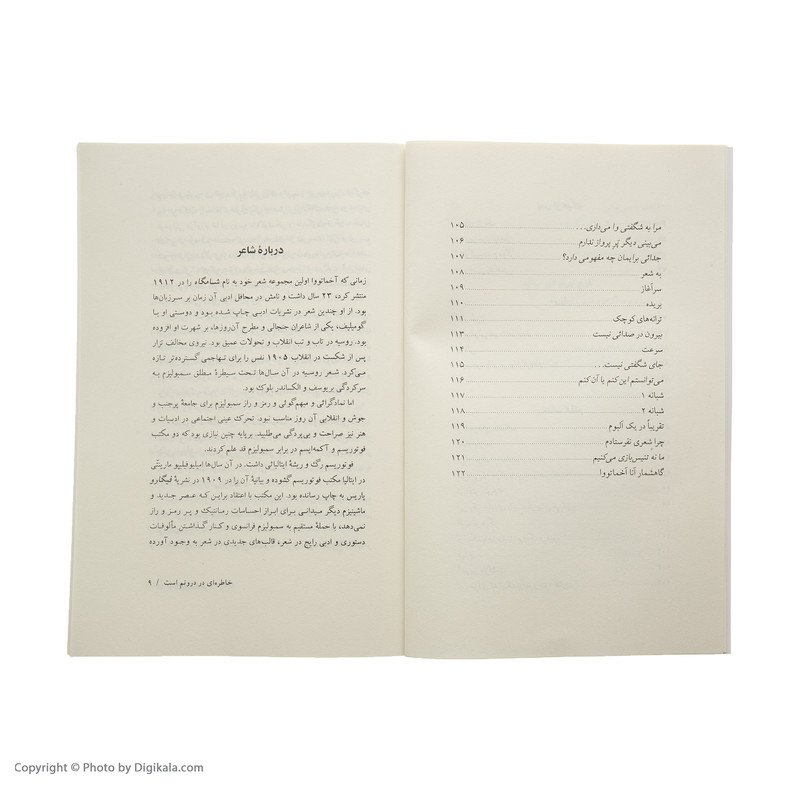 مرا به شگفتی وا می‌داری... ۱۰۵
می‌بینی دیگر پَرِ پرواز ندارم ۱۰۶
جدائی برایمان چه مفهومی دارد؟ ۱۰۷
به شعر ۱۰۸
سرآغاز ۱۰۹
بریده ۱۱۰
ترانه‌های کوچک ۱۱۱
بیرون در صدائی نیست ۱۱۳
سرعت ۱۱۴
جای شگفتی نیست... ۱۱۵
می‌توانستم این کنم یا آن کنم ۱۱۶
شبانه ۱ ۱۱۷
شبانه ۲ ۱۱۸
تقریباً در یک آلبوم ۱۱۹
چرا شعری نفرستادم ۱۲۰
ما نه تنیس‌بازی می‌کنیم ۱۲۱
گاهشمار آنا آخماتووا ۱۲۲
دربارهٔ شاعر
زمانی که آخماتووا اولین مجموعه شعر خود به نام شامگاه را در ۱۹۱۲
منتشر کرد، ۲۳ سال داشت و نامش در محافل ادبی آن زمان بر سرزبان‌ها
بود. از او چندین شعر در نشریات ادبی چاپ شده بود و دوستی او با
گومیلیف، یکی از شاعران جنجالی و مطرح آن‌روزها، بر شهرت او افزوده
بود. روسیه در تاب و تب انقلاب و تحولات عمیق بود. نیروی مخالف تزار
پس از شکست در انقلاب ۱۹۰۵ نفس را برای تهاجمی گسترده‌تر تازه
می‌کرد. شعر روسیه در آن سال‌ها تحت سیطرهٔ مطلق سمبولیزم به
سرکردگی بریوسف و الکساندر بلوک بود.
اما نمادگرائی و مبهم‌گوئی و رمز و راز سمبولیزم برای جامعهٔ پرجنب و
جوش و انقلابی آن روز مناسب نبود. تحرک عینی اجتماعی در ادبیات و
هنر نیز صراحت و بی‌پردگی می‌طلبید. برپایه چنین نیازی بود که دو مکتب
فوتوریسم و آکمه‌ایسم در برابر سمبولیزم قد علم کردند.
فوتوریسم رگ و ریشهٔ ایتالیائی داشت. در آن سال‌ها امیلیوفیلیپو مارینتّی
در ایتالیا مکتب فوتوریسم گشوده و بیانیهٔ آن را در ۱۹۰۹ در نشریهٔ فیگارو
پاریس به چاپ رسانده بود. این مکتب با اعتقاد براین‌که عصر جدید و
ماشینیزم دیگر میدانی برای ابراز احساسات رمانتیک و پر رمز و راز
نمی‌دهد، با حملهٔ مستقیم به سمبولیزم فرانسوی و کنار گذاشتن مألوفات
دستوری و ادبی رایج در شعر، قالب‌های جدیدی در شعر به وجود آورده
خاطره‌ای در درونم است / ۹
Copyright © Photo by Digikala.com